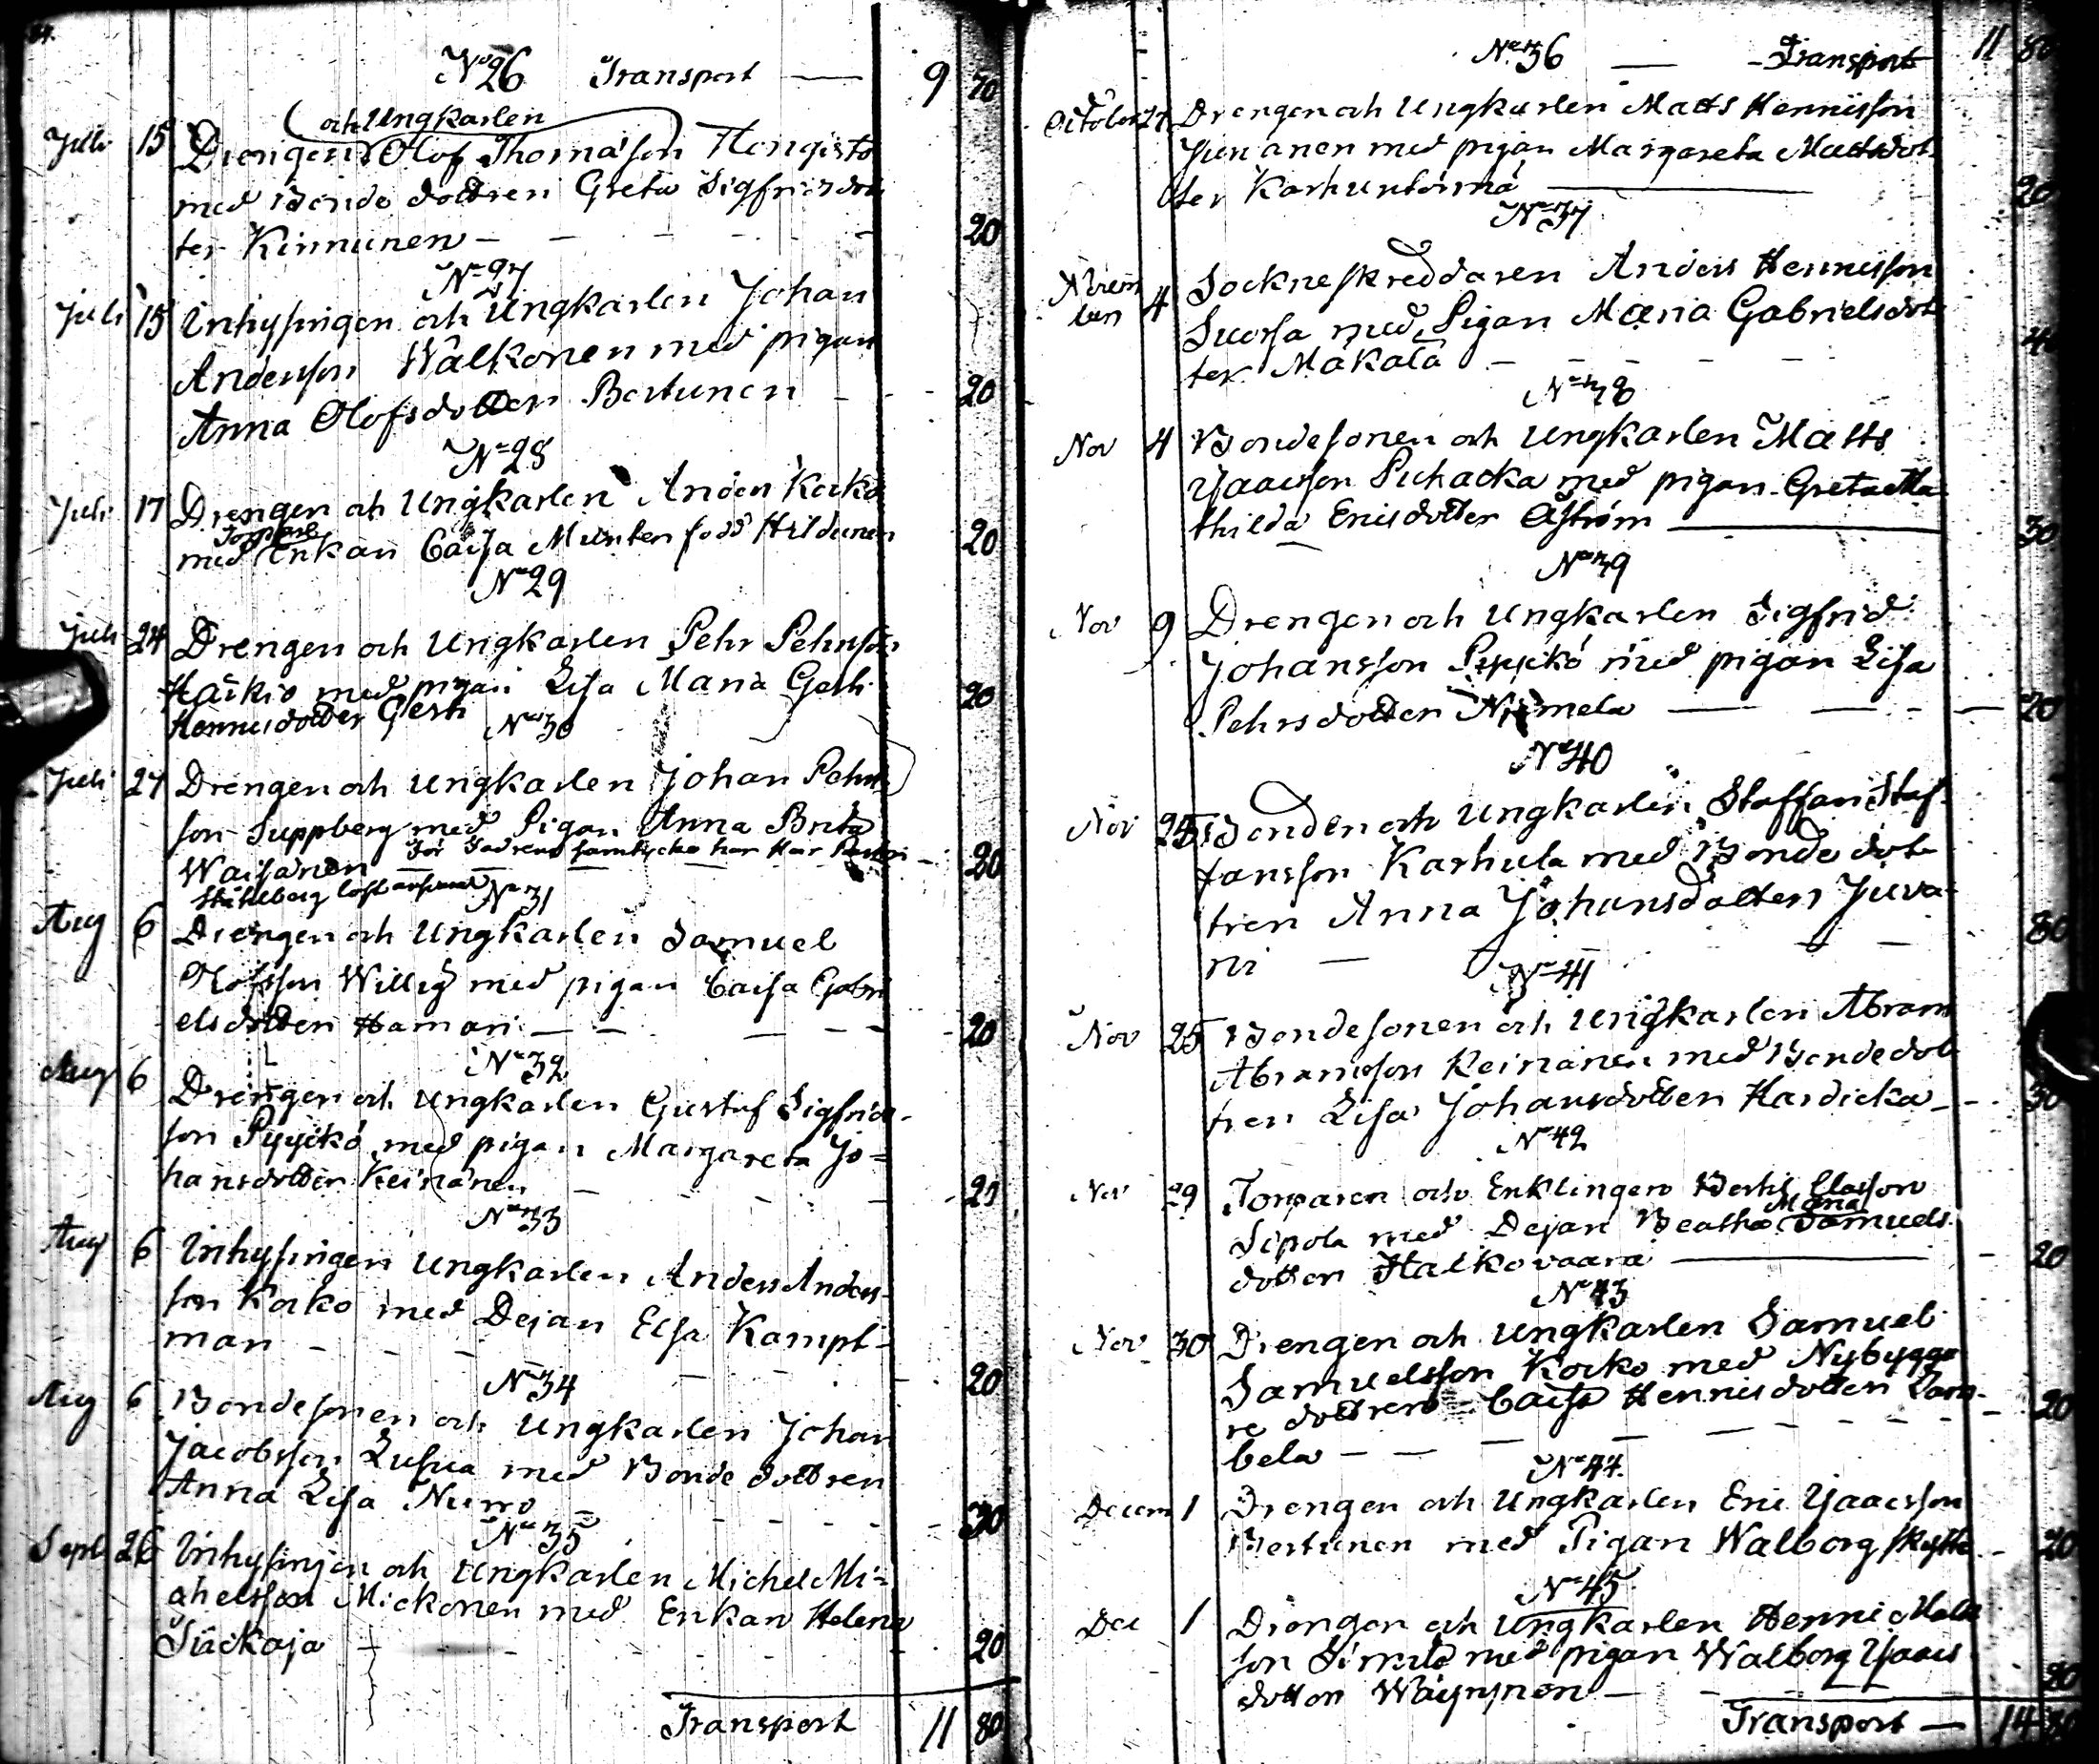 No 26 Transport — 9 70
och Ungkarlen
Juli 15 Drengen Olof Thomasson Hengisto
med Bonde dottren Greta Sigfridsdot
ter Kinnunen 20
No 27
Juli 15 Inhysingen och Ungkarlen Johan
Andersson Walkonen med pigan
Anna Olofsdotter Bertunen 20
No 28
Juli 17 Drengen och Ungkarlen Anders Kocko
med Enkan Caisa Munter född Hildunen 20
No 29
Juli 24 Drengen och Ungkarlen Pehr Pehrsson
Harkio med pigan Lisa Maria Gerti 20
Hennesdotter Gerti
No 30
Juli 27 Drengen och Ungkarlen Johan Pehrs
son Suppberg med Pigan Anna Brita
Waisanen 20
No 31
Aug 6 Drengen och Ungkarlen Samuel
Olofsson Willig med pigan Caisa Gabri
elsdotter Hamari 20
No 32
Aug 6 Drengen och Ungkarlen Gustaf Sigfrids-
son Pyyckö med pigan Margareta Jo=
hansdotter Keinänen 20
No 33
Aug 6 Inhysingen Ungkarlen Anders Anders-
son Kocko med Dejan Elsa Kampl-
man 20
No 34
Aug 6 Bondesonen och Ungkarlen Johan
Jacobsson Lusua med Bonde dottren
Anna Lisa Nurro 30
No 35
Sept 26 Inhysingen och Ungkarlen Michel Mi=
chelsson Mickonen med Enkan Helena
Siickaja 20
Transport 11 80
No 36 — Transport 11 80
October 27 Drengen och Ungkarlen Matts Hennisson
Junanen med pigan Margareta Mattsdot
ter Karhuntörmä — 20
No 37
Novem
ber 4 Sockneskreddaren Anders Hennisson
Suorsa med Pigan Maria Gabrielsdot
ter Mäkälä 40
No 38
Nov 4 Bondesonen och Ungkarlen Matts
Isaacsson Puhacka med pigan Greta Ma
thilda Ericsdotter Åström — 30
No 39
Nov 9 Drengen och Ungkarlen Sigfrid
Johansson Pyyckö med pigan Lisa
Pehrsdotter Niemela — 20
No 40
Nov 25 Bonden och Ungkarlen Staffan Staf-
fansson Karhula med Bonde dot
tren Anna Johansdotter Juva-
ni — 80
No 41
Nov 25 Bondesonen och Ungkarlen Abram
Abramsson Keinänen med Bondedot
tren Lisa Johansdotter Hardicka 30
No 42
Nov 29 Torparen och Enklingen Bertil Classon
Maria
Sipola med Dejan Beatha Samuels
dotter Halkovaara — 20
No 43
Nov 30 Drengen och Ungkarlen Samuel
Samuelsson Kocko med Nybygga
re dottren Caisa Hennisdotter Lam- 20
bela
No 44
Decem 1 Drengen och Ungkarlen Eric Isaacsson
Bertunen med Pigan Walborg Skytte 20
No 45
Dec 1 Drengen och Ungkarlen Hennic Matts
son Sirniö med pigan Walborg Isaacs
dotter Wäyrynen 20
Transport — 14 80